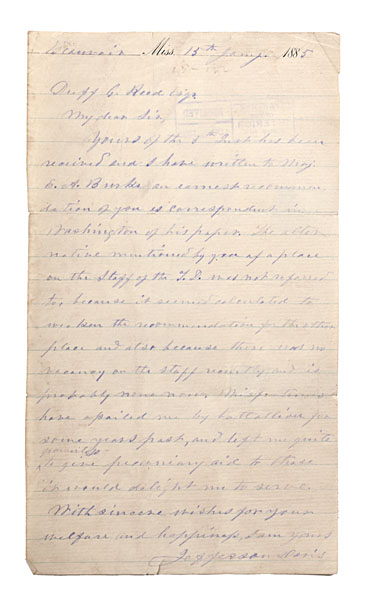 Beauvoir Miss. 15th Jany. 1885
Duff C. Reed Esq
My dear Sir,
Yours of the 5th Inst has been
received and I have written to Maj.
E. A. Burke, an earnest recommen
dation of you as correspondent in
Washington of his paper. The alter
native mentioned by you of a place
on the staff of the T. D. was not referred
to, because it seemed calculated to
weaken the recommendation for the other
place and also because there was no
vacancy on the staff recently and is
probably none now. Misfortunes
have assailed me by battallion for
some years past, and left me quite
powerless
to give pecuniary aid to those
it would delight me to serve.
With sincere wishes for your
welfare and happiness, I am yours
Jefferson Davis